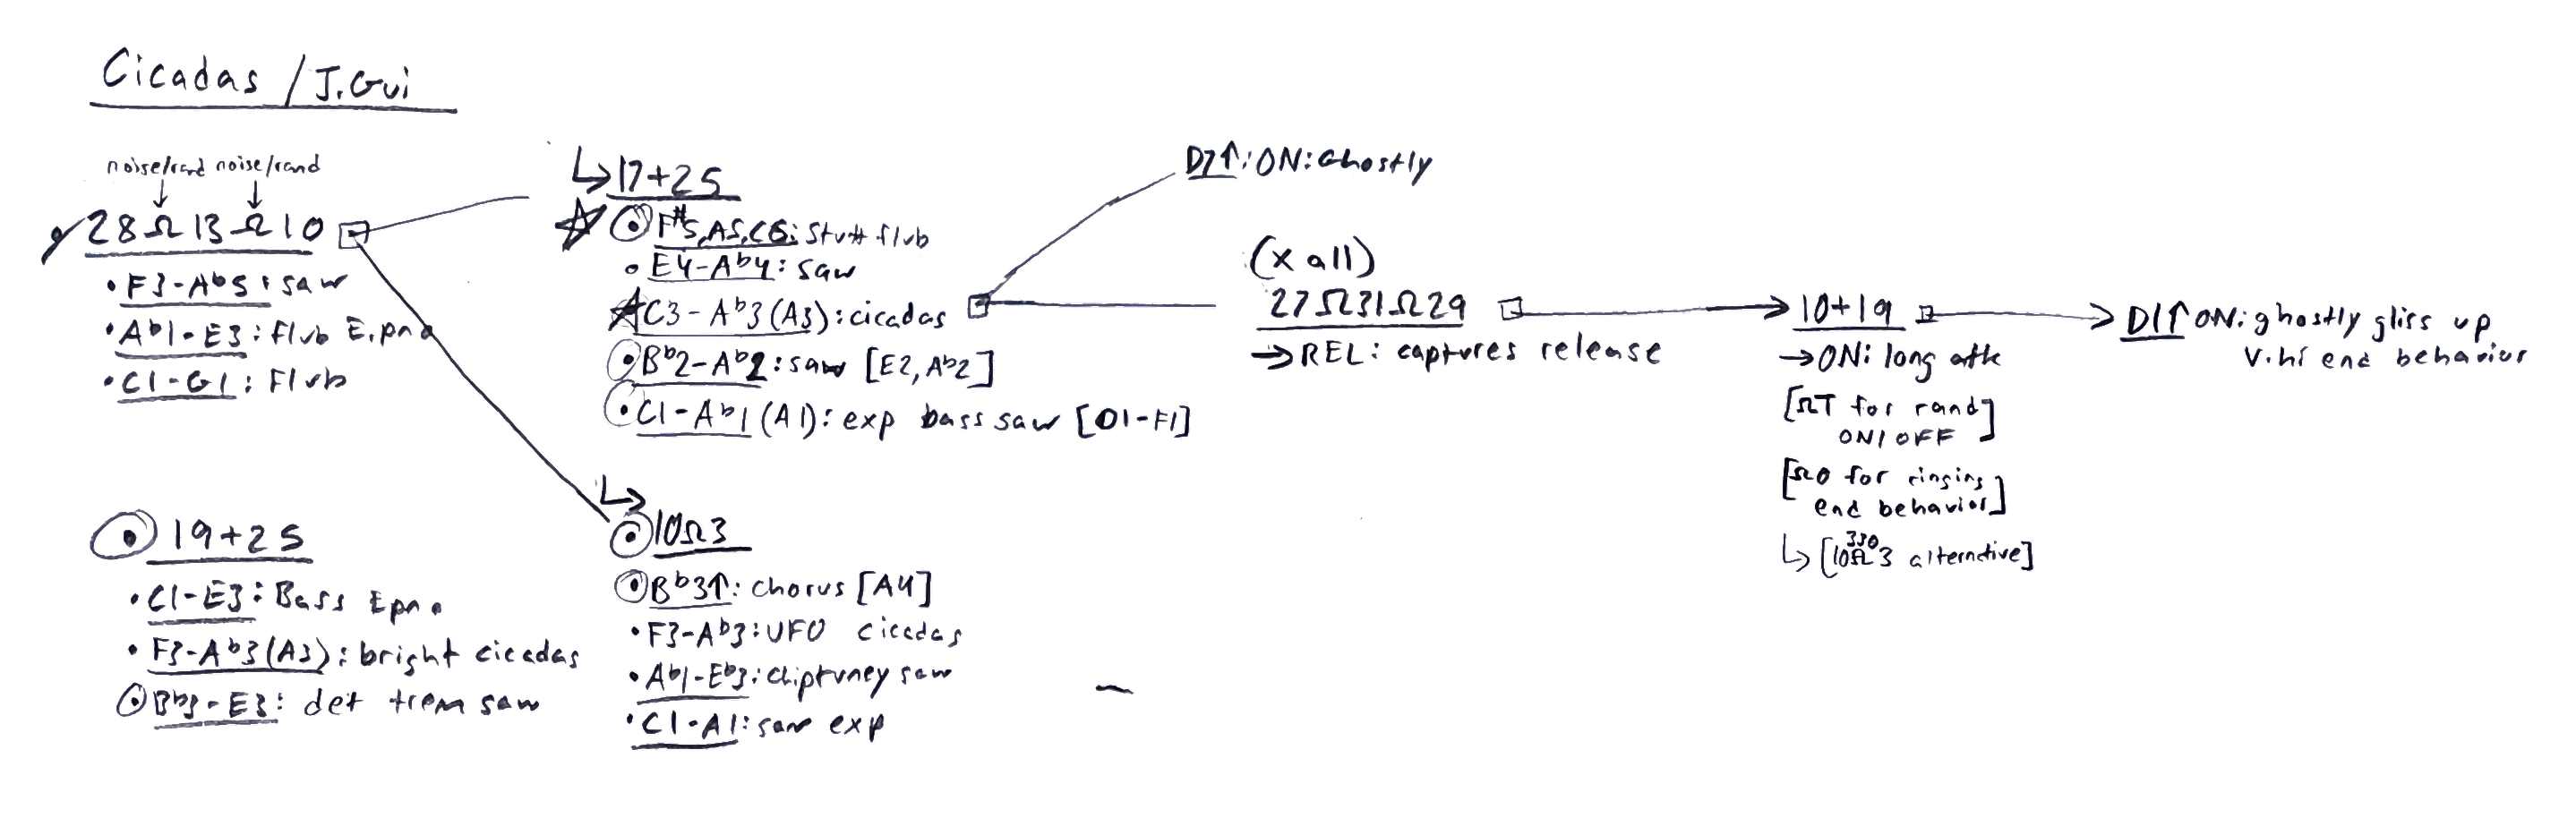 Cicadas / J.Gui
noise/rand noise/rand
28Ω13Ω10
• F3-Ab5: saw
• Ab1-E3: flub E.pno
• C1-G1: Flub
19+25
• C1-E3: Bass Epno
• F3-Ab3(A3): bright cicadas
Bb3-E3: det trem saw
17+25
F#5,A5,C6: stutt flub
E4-Ab4: saw
C3-Ab3(A3): cicadas
Bb2-Ab2: saw [E2, Ab2]
C1-Ab1(A1): exp bass saw [D1-F1]
10Ω3
Bb3↑: chorus [A4]
• F3-Ab3: UFO cicadas
• Ab1-Eb3: chiptuney saw
• C1-A1: saw exp
D7↑: ON: Ghostly
(x all)
27Ω31Ω29
→REL: captures release
10+19
→ON: long atk
[ΩT for rand
ON/OFF]
[ΩO for ringing
end behavior]
↳[10Ω3 alternative]
330
D1↑ ON: ghostly gliss up
v.hi end behavior